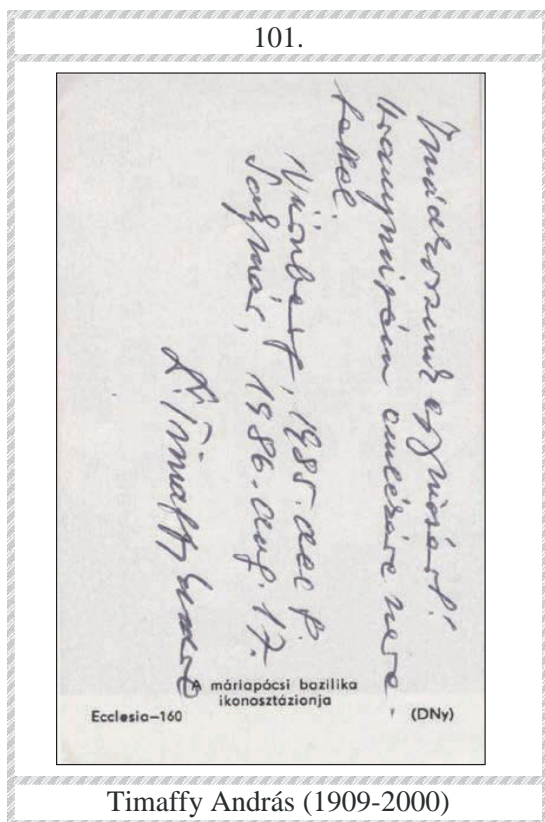 101.
Imádkozzunk egymásért!
Aranymisém emlékére szere-
tettel
Nürnberg, 1985. dec 8.
Szatmár, 1986. aug. 17.
Dr. Timaffy
A máriapócsi bazilika
ikonosztázionja
Ecclesia–160 (DNy)
Timaffy András (1909-2000)